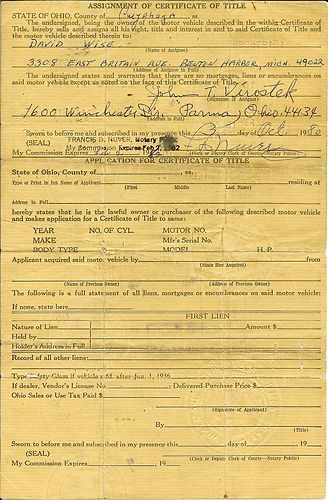 ASSIGNMENT OF CERTIFICATE OF TITLE
STATE OF OHIO, County of Cuyahoga ss.
The undersigned, being the owner of the motor vehicle described in the within Certificate of
Title, hereby sells and assigns all his right, title and interest in and to said Certificate of Title and
the motor vehicle described therein to:
DAVID WISE
(Name of Assignee)
3308 EAST BRITAIN AVE. BENTON HARBOR, MICH. 49022
(Address of Assignee in Full)
The undersigned states and warrants that there are no mortgages, liens or encumbrances on
said motor vehicle except as noted on the face of this Certificate of Title.
John T. Virostek
1600 Winchester Parma, Ohio. 44134
Sworn to before me and subscribed in my presence this 3 day of Oct 1980
(SEAL) FRANCIS D. NUVER, Notary
My Commission Expires Feb 2, 1982
My Commission Expires
(Clerk or Deputy Clerk of Courts—Notary Public)
APPLICATION FOR CERTIFICATE OF TITLE
State of Ohio, County of ss.
Type or Print in Ink Name of Applicant residing at
(First) (Middle) (Last Name)
Address in Full
hereby states that he is the lawful owner or purchaser of the following described motor vehicle
and makes application for a Certificate of Title to same:
YEAR NO. OF CYL. MOTOR NO.
MAKE Mfr's Serial No.
BODY TYPE MODEL H.P.
Applicant acquired said motor vehicle by from
(State How Acquired)
(Name of Previous Owner) (Address of Previous Owner)
The following is a full statement of all liens, mortgages or encumbrances on said motor vehicle:
If none, state here
FIRST LIEN
Nature of Lien Amount $
Held by
Holder's Address in Full
Record of all other liens:
Type Safety Glass if vehicle mfd after Jan. 1, 1936
If dealer, Vendor's License No. ; Delivered Purchase Price $
Ohio Sales or Use Tax Paid $
(Signature of Applicant)
By
(Title)
Sworn to before me and subscribed in my presence this day of 19
(SEAL)
(Clerk or Deputy Clerk of Courts—Notary Public)
My Commission Expires , 19